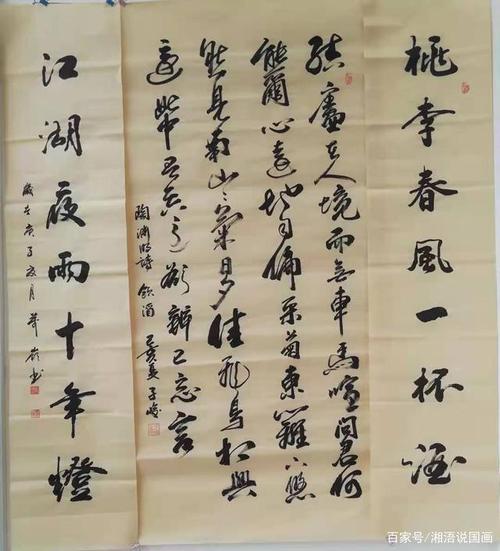 桃李春風一杯酒
結廬在人境而無車馬喧問君何
能爾心遠地自偏采菊東籬下悠
然見南山〻氣日夕佳飛鳥相與
還此中有真意欲辨已忘言
陶渊明詩 飲酒
江湖夜雨十年燈
歲在庚子夏月
百家号/湘浯说国画